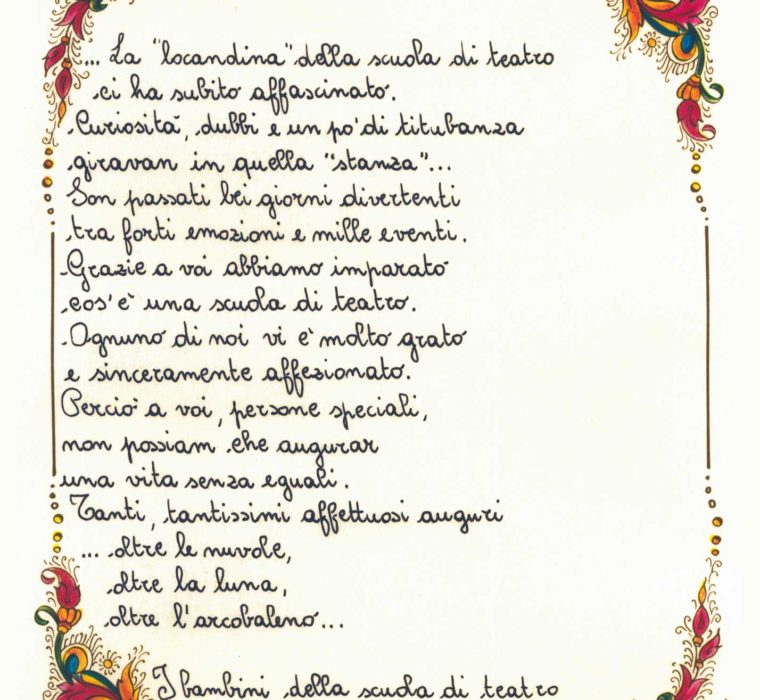 ... La "locandina" della scuola di teatro
ci ha subito affascinato.
Curiosità, dubbi e un po' di titubanza
giravan in quella "stanza"...
Son passati bei giorni divertenti
tra forti emozioni e mille eventi.
Grazie a voi abbiamo imparato
cos'è una scuola di teatro.
Ognuno di noi vi è molto grato
e sinceramente affezionato.
Perciò a voi, persone speciali,
non possiam che augurar
una vita senza eguali.
Tanti, tantissimi affettuosi auguri
... oltre le nuvole,
oltre la luna,
oltre l'arcobaleno...
I bambini della scuola di teatro